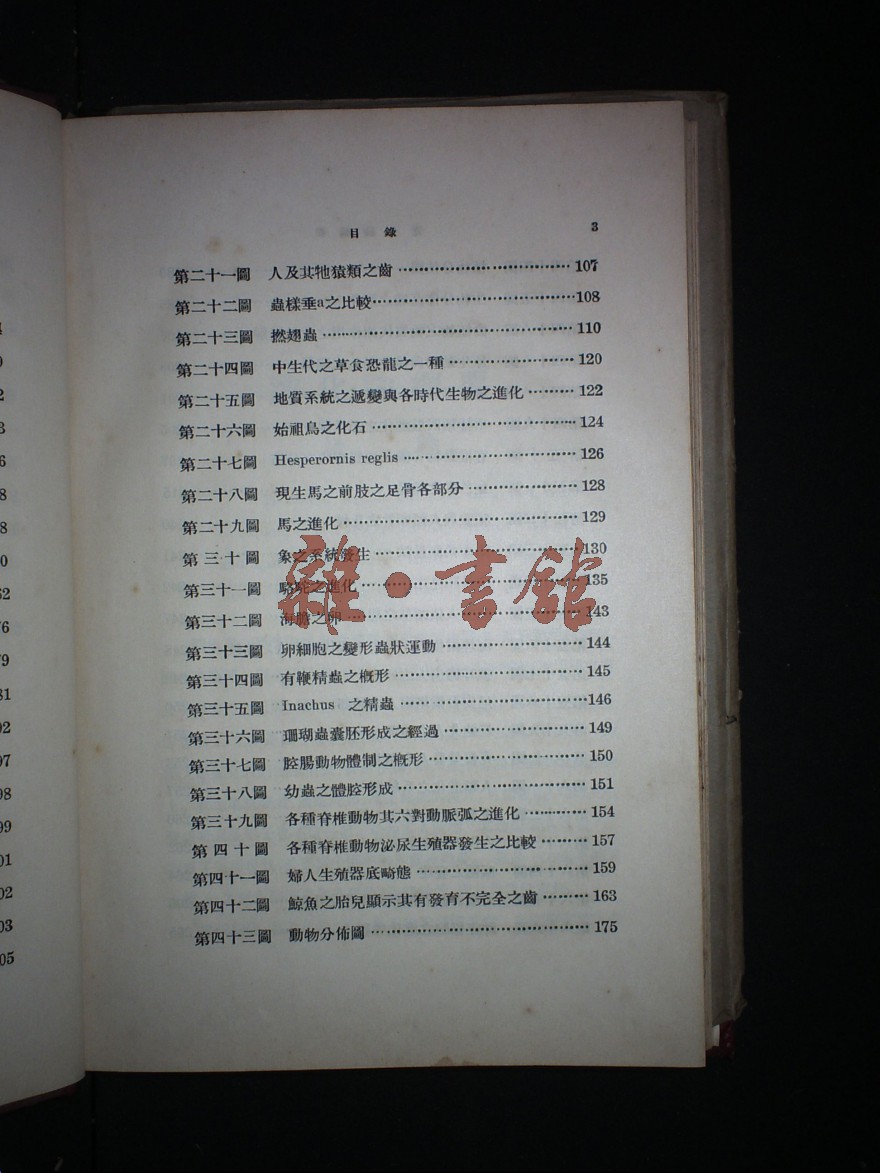 目錄 3
第二十一圖 人及其牠猿類之齒 107
第二十二圖 蟲樣垂a之比較 108
第二十三圖 撚翅蟲 110
第二十四圖 中生代之草食恐龍之一種 120
第二十五圖 地質系統之遞變與各時代生物之進化 122
第二十六圖 始祖鳥之化石 124
第二十七圖 Hesperornis reglis 126
第二十八圖 現生馬之前肢之足骨各部分 128
第二十九圖 馬之進化 129
第三十圖 象之系統發生 130
第三十一圖 駱駝之進化 135
第三十二圖 海膽之卵 143
第三十三圖 卵細胞之變形蟲狀運動 144
第三十四圖 有鞭精蟲之概形 145
第三十五圖 Inachus 之精蟲 146
第三十六圖 珊瑚蟲囊胚形成之經過 149
第三十七圖 腔腸動物體制之概形 150
第三十八圖 幼蟲之體腔形成 151
第三十九圖 各種脊椎動物其六對動脈弧之進化 154
第四十圖 各種脊椎動物泌尿生殖器發生之比較 157
第四十一圖 婦人生殖器底畸態 159
第四十二圖 鯨魚之胎兒顯示其有發育不完全之齒 163
第四十三圖 動物分佈圖 175
雜·書館